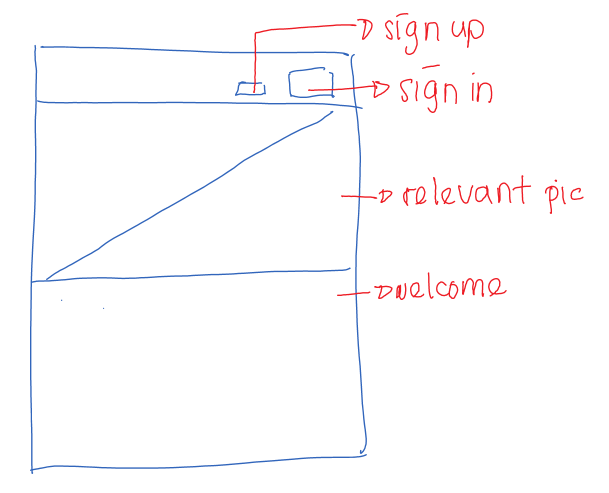 sign up
sign in
relevant pic
welcome